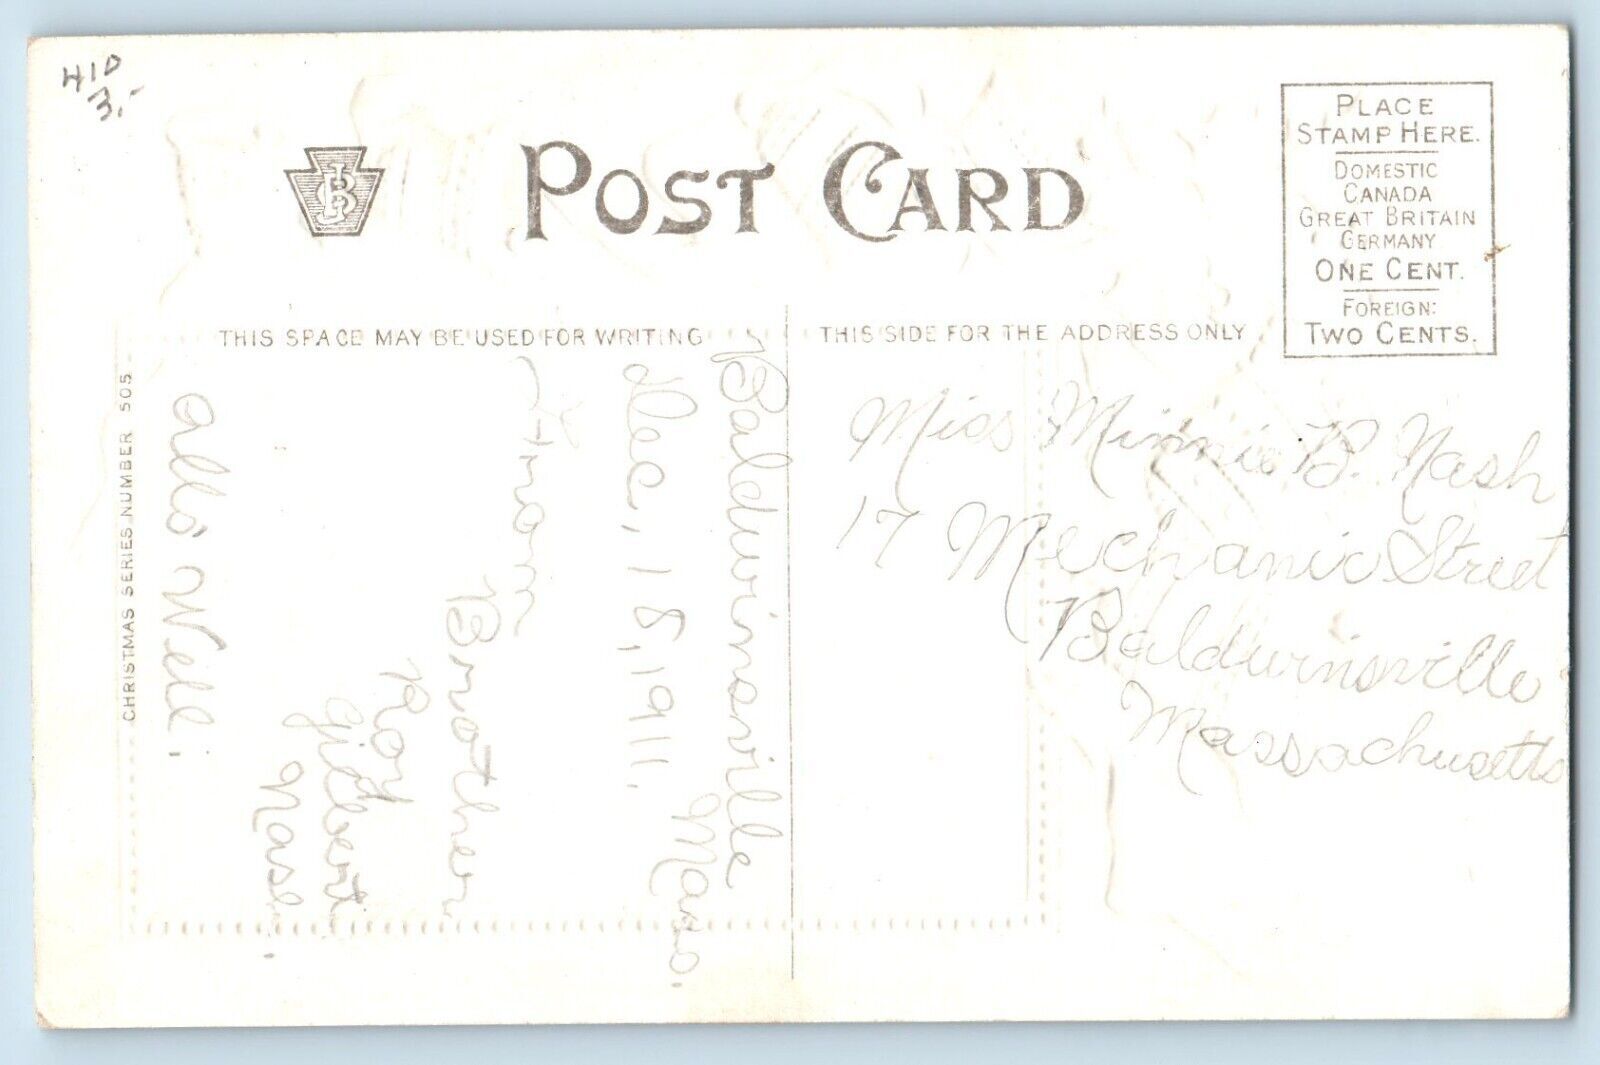 410
3.-
POST CARD
PLACE
STAMP HERE.
DOMESTIC
CANADA
GREAT BRITAIN
GERMANY
ONE CENT.
FOREIGN:
TWO CENTS.
THIS SPACE MAY BE USED FOR WRITING
THIS SIDE FOR THE ADDRESS ONLY
CHRISTMAS SERIES NUMBER 505
Baldwinsville
Mass.
Dec, 18, 1911.
From
Brother
Roy
Gilbert
Nash.
All's Well.
Miss Minnie B. Nash
17 Mechanic Street
Baldwinsville
Massachusetts